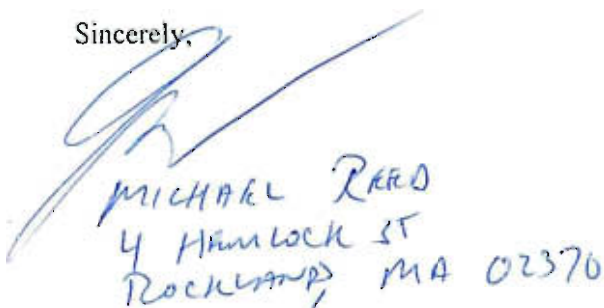 Sincerely,
MICHAEL REED
4 HEMLOCK ST
ROCKLAND, MA 02370